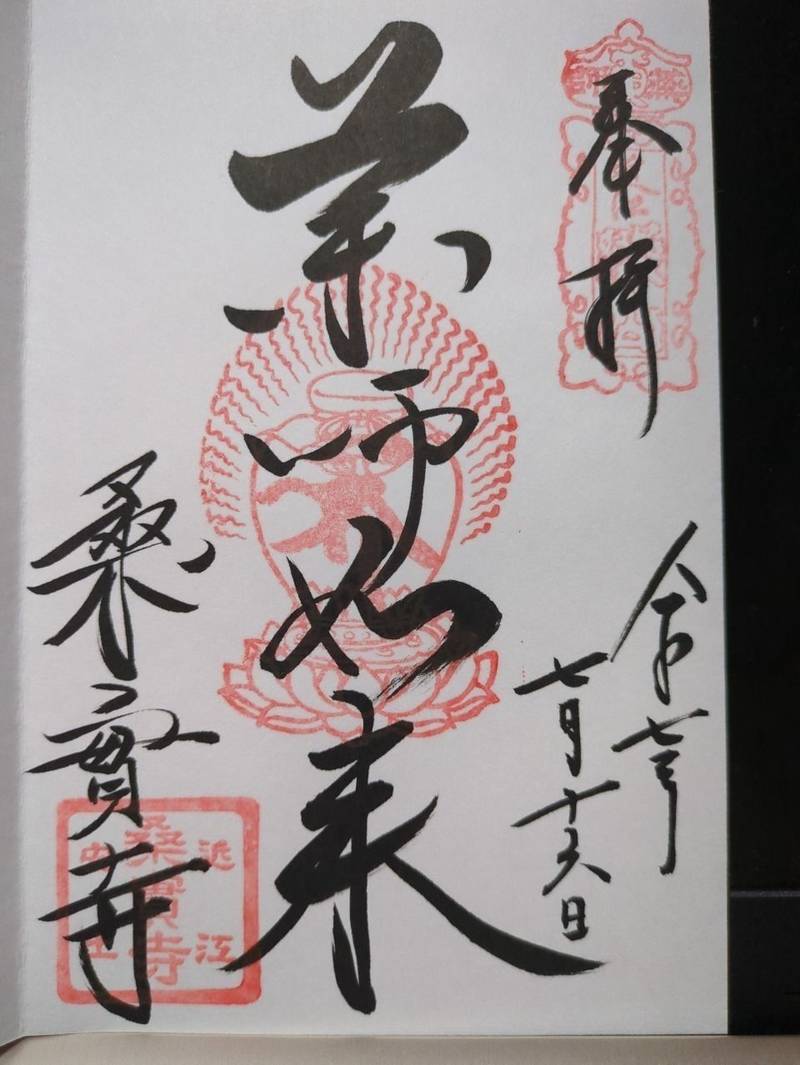 奉拝
令和七年
七月十六日
薬師如来
桑實寺
近江
桑實寺
安土